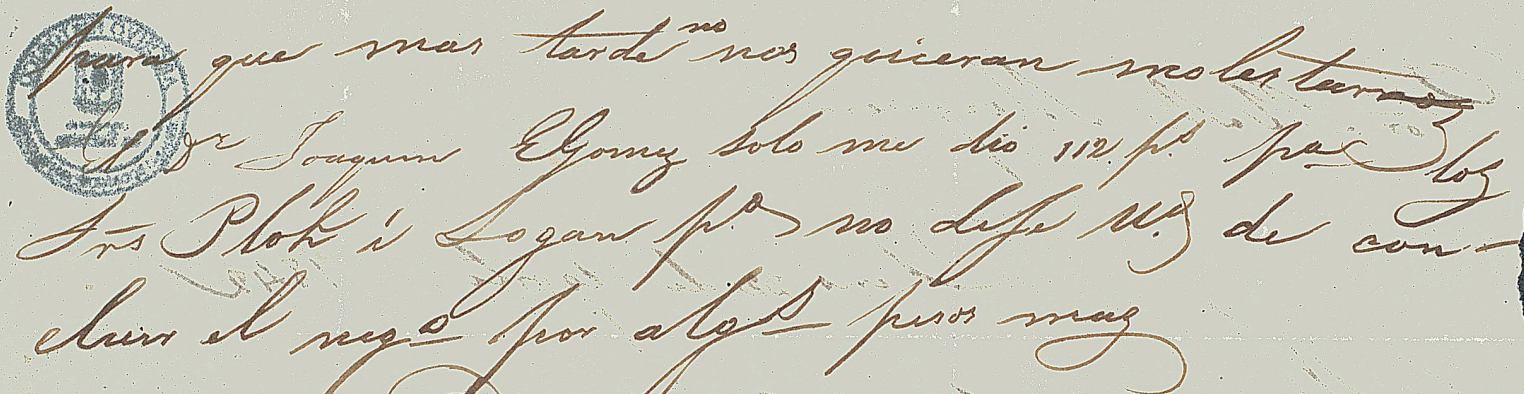 para que mas tarde no nos quiceran molestar
El Dr Joaquin EGomez solo me dio 112 ps. pa. los
Srs Plok i Logan po. no deje U. de con-
cluir el nego por algs pesos mas